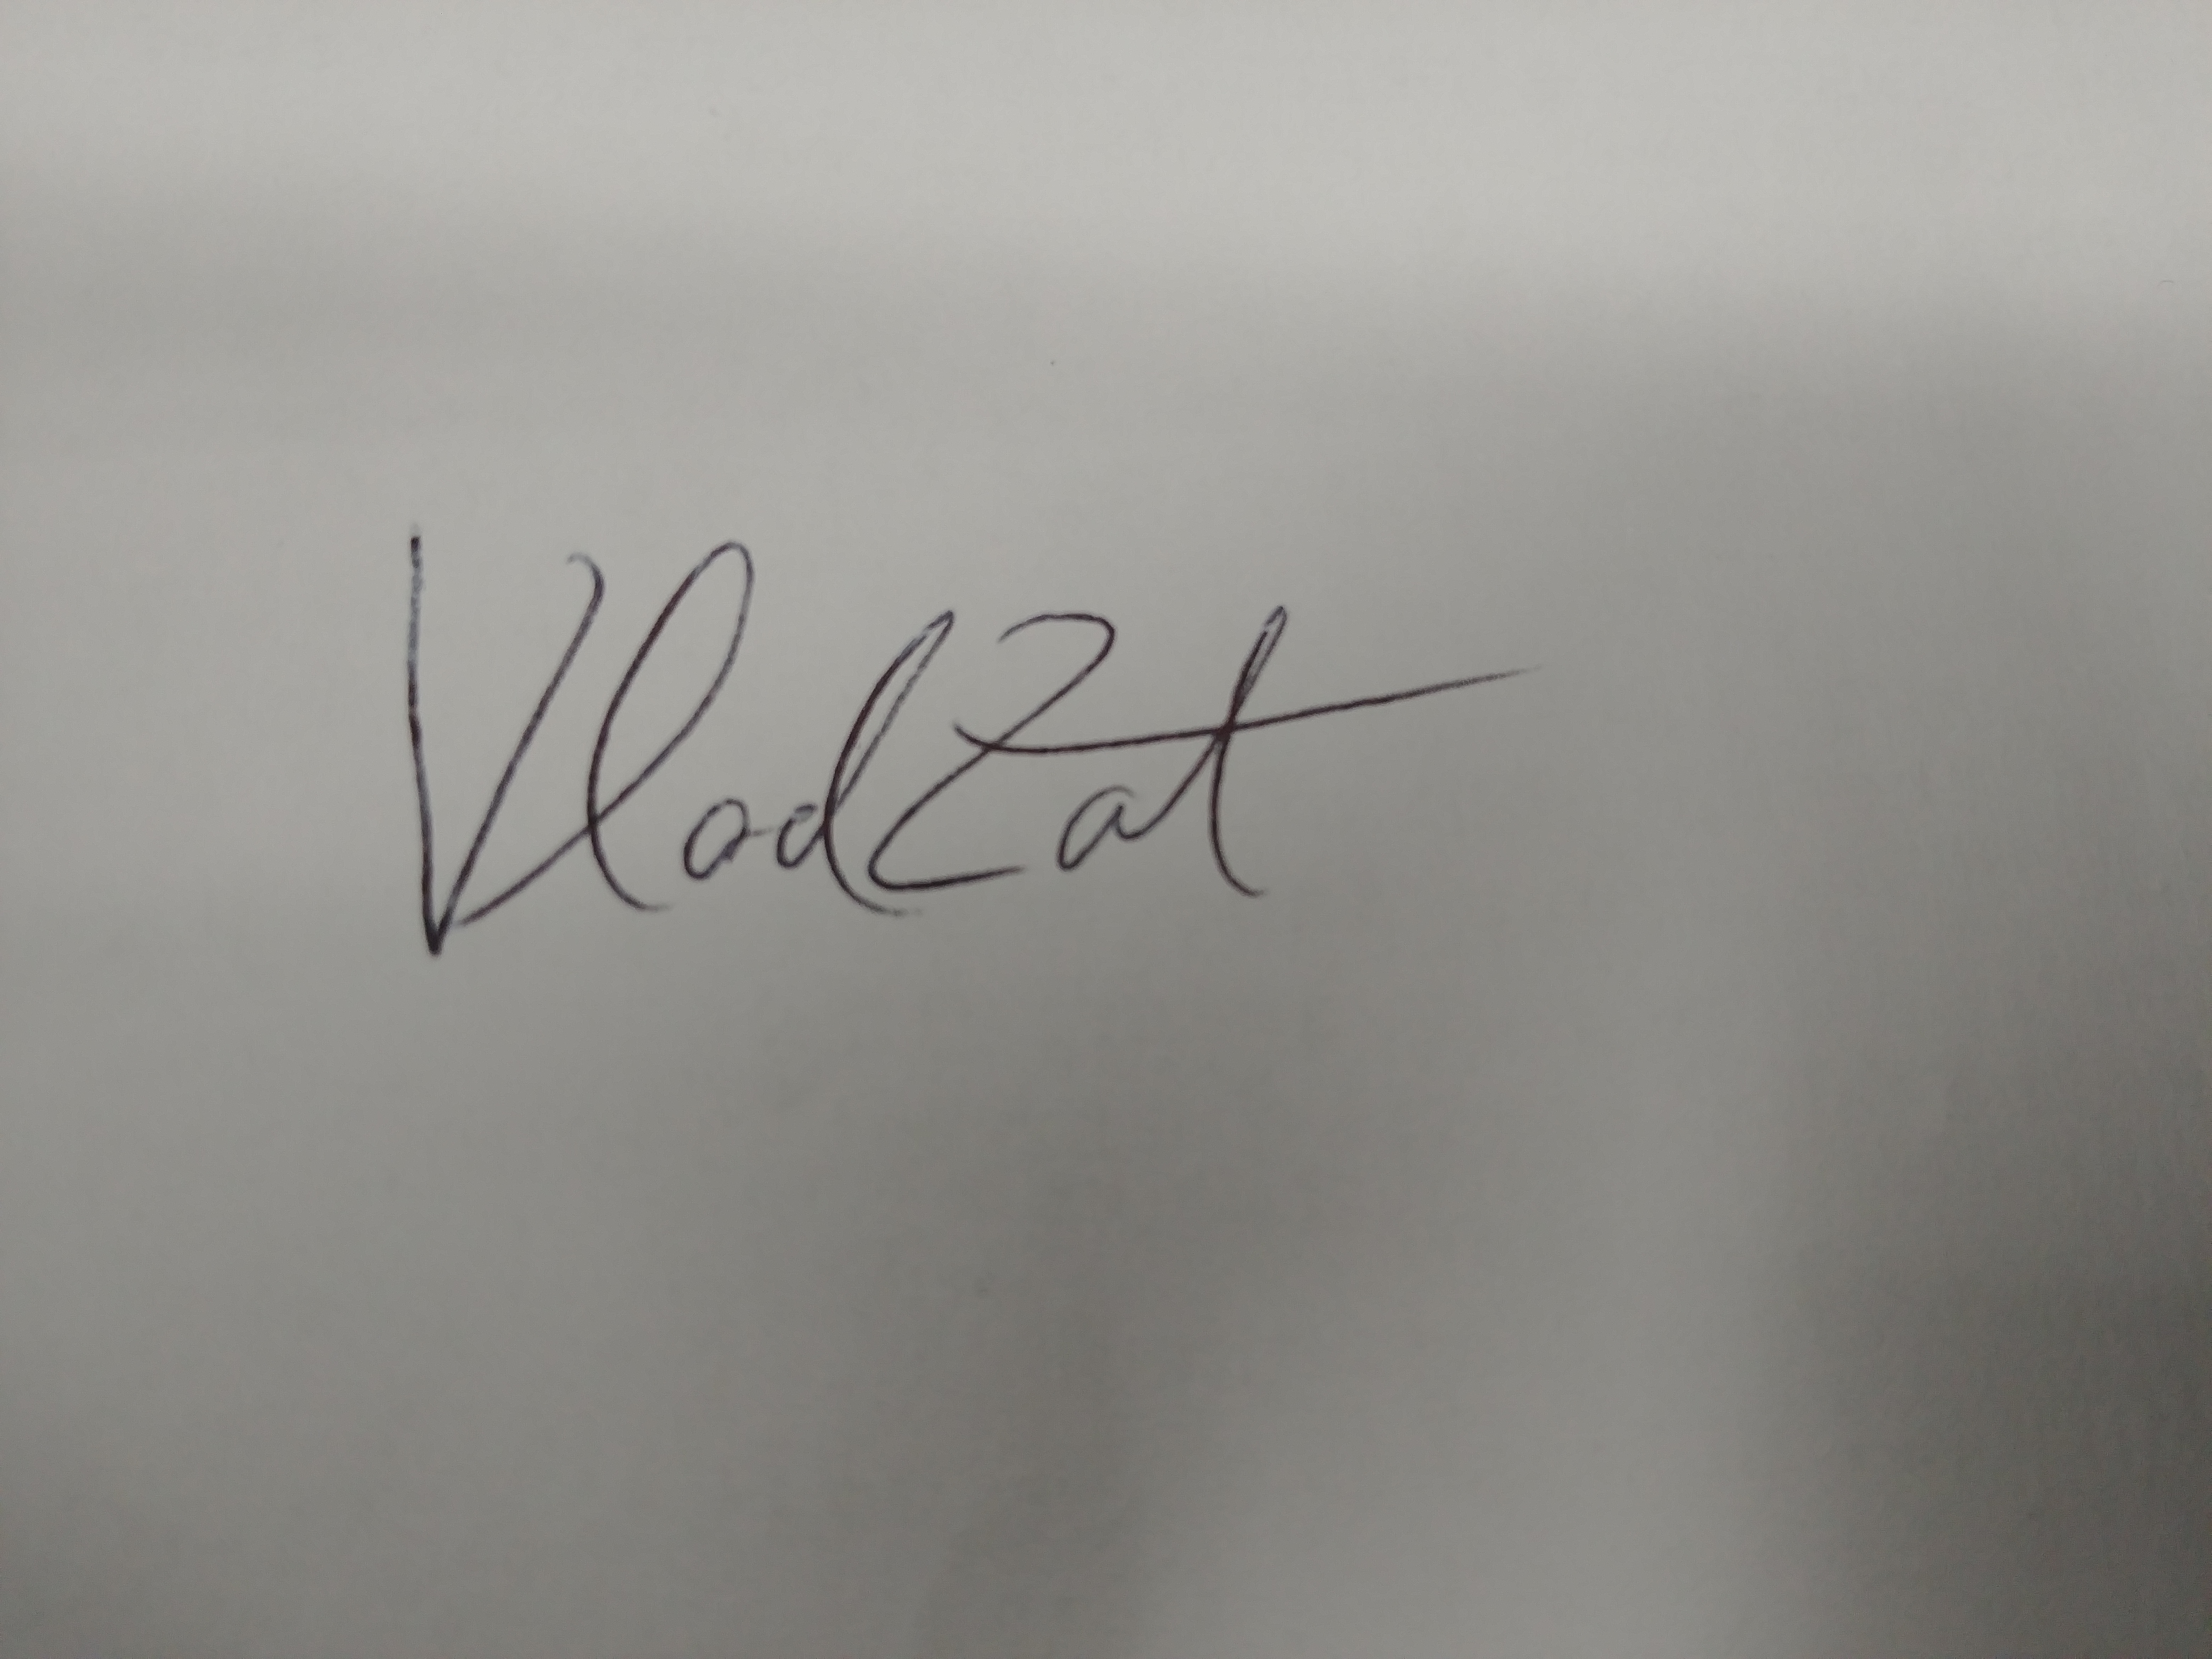 Vlad Zat